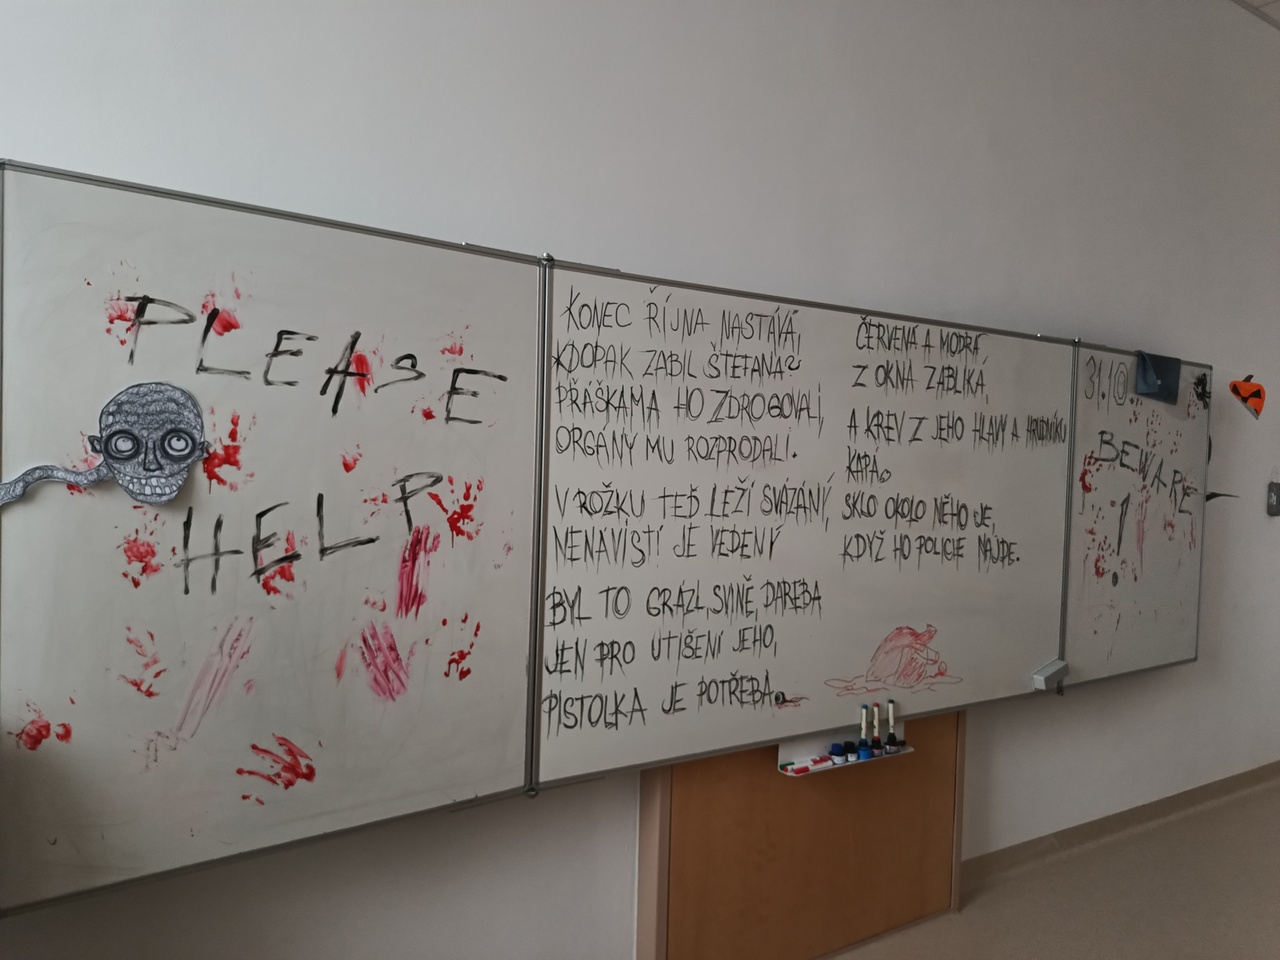 PLEASE
HELP
KONEC ŘÍJNA NASTÁVÁ,
KDOPAK ZABIL ŠTEFANA?
PŘÁŠKAMA HO ZDROGOVALI,
ORGÁNY MU ROZPRODALI.
V ROŽKU TEĎ LEŽÍ SVÁZÁNÍ,
NENÁVISTÍ JE VEDENÝ
BYL TO GRÁZL, SVINĚ, DAREBA
JEN PRO UTIŠENÍ JEHO,
PISTOLKA JE POTŘEBA.
ČERVENÁ A MODRÁ
Z OKNA ZABLIKÁ,
A KREV Z JEHO HLAVY A HRUDNÍKU
KAPÁ.
SKLO OKOLO NĚHO JE,
KDYŽ HO POLICIE NAJDE.
31.10.
BEWARE
!